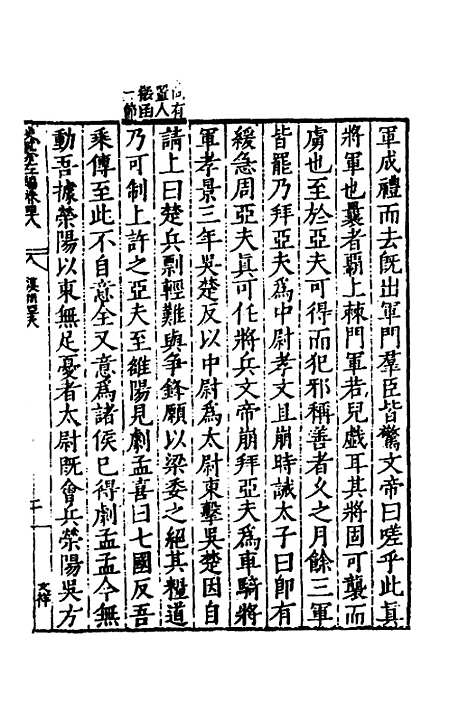 軍成禮而去既出軍門羣臣皆驚文帝曰嗟乎此真
將軍也曩者霸上棘門軍若兒戲耳其將固可襲而
虜也至於亞夫可得而犯邪稱善者久之月餘三軍
皆罷乃拜亞夫為中尉孝文且崩時誡太子曰卽有
緩急周亞夫真可任將兵文帝崩拜亞夫為車騎將
軍孝景三年吳楚反以中尉為太尉東擊吳楚因自
請上曰楚兵剽輕難與爭鋒願以梁委之絕其糧道
乃可制上許之亞夫至雒陽見劇孟喜曰七國反吾
乘傳至此不自意全又意為諸侯已得劇孟孟今無
動吾據滎陽以東無足憂者太尉既會兵滎陽吳方
有
置人
一節